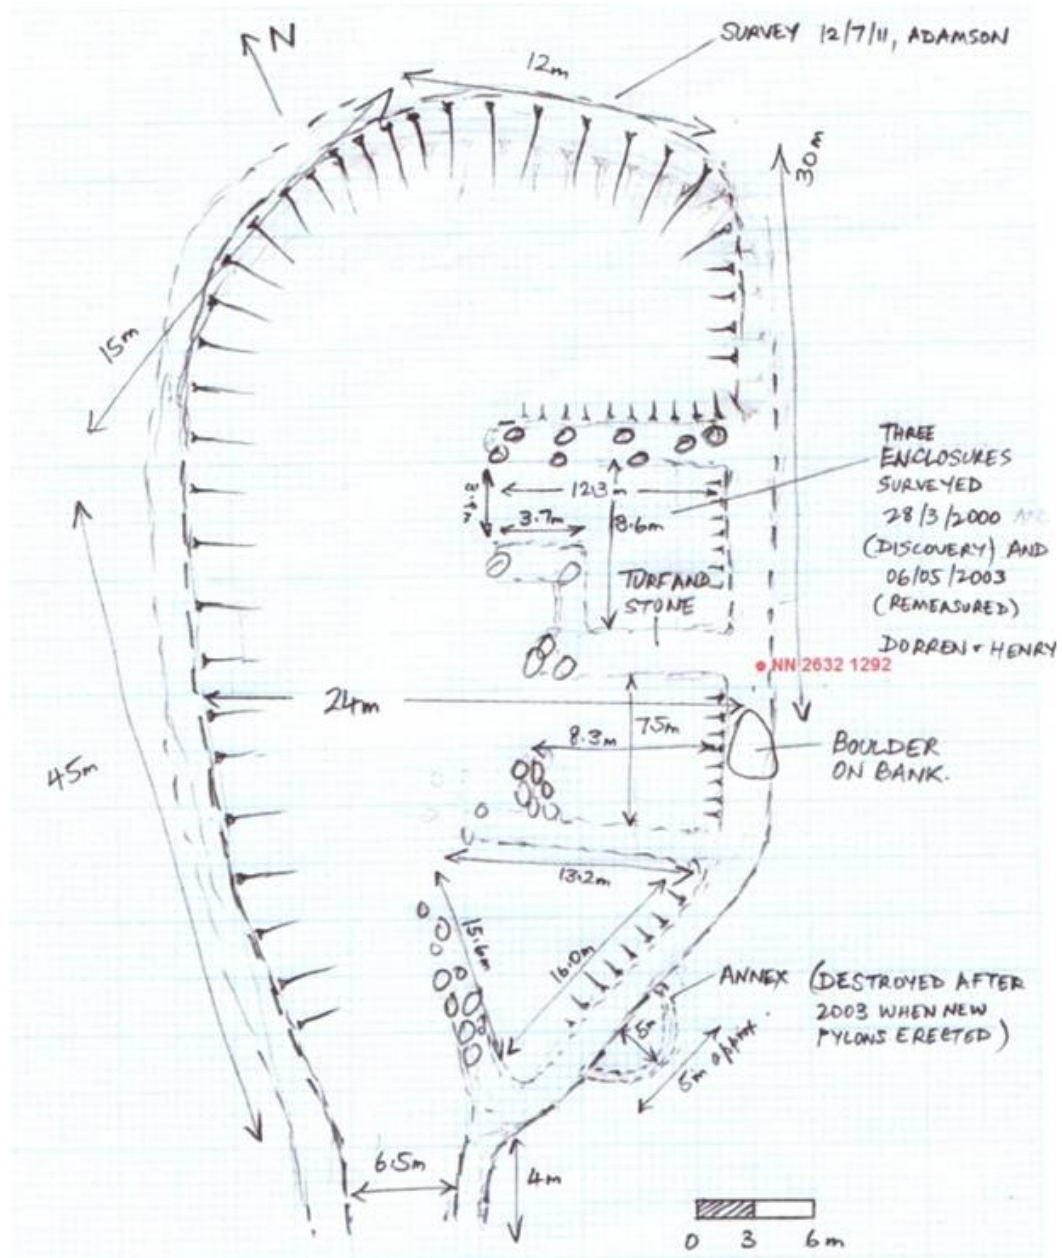 N
SURVEY 12/7/11, ADAMSON
12m
30m
15m
THREE
ENCLOSURES
SURVEYED
28/3/2000
(DISCOVERY) AND
06/05/2003
(REMEASURED)
DORREN + HENRY
12.3m
3.7m
8.6m
TURF AND
STONE
NN 2632 1292
24m
7.5m
8.3m
BOULDER
ON BANK.
45m
13.2m
15.6m
16.0m
ANNEX (DESTROYED AFTER
2003 WHEN NEW
PYLONS ERECTED)
5m approx
6.5m
4m
0 3 6m